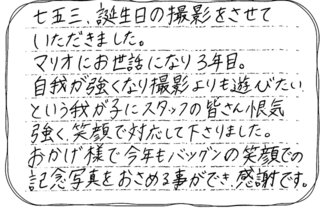 七五三、誕生日の撮影をさせて
いただきました。
マリオにお世話になり3年目。
自我が強くなり撮影よりも遊びたい
という我が子にスタッフの皆さん根気
強く、笑顔で対応して下さりました。
おかげ様で今年もバツグンの笑顔での
記念写真をおさめる事ができ、感謝です。